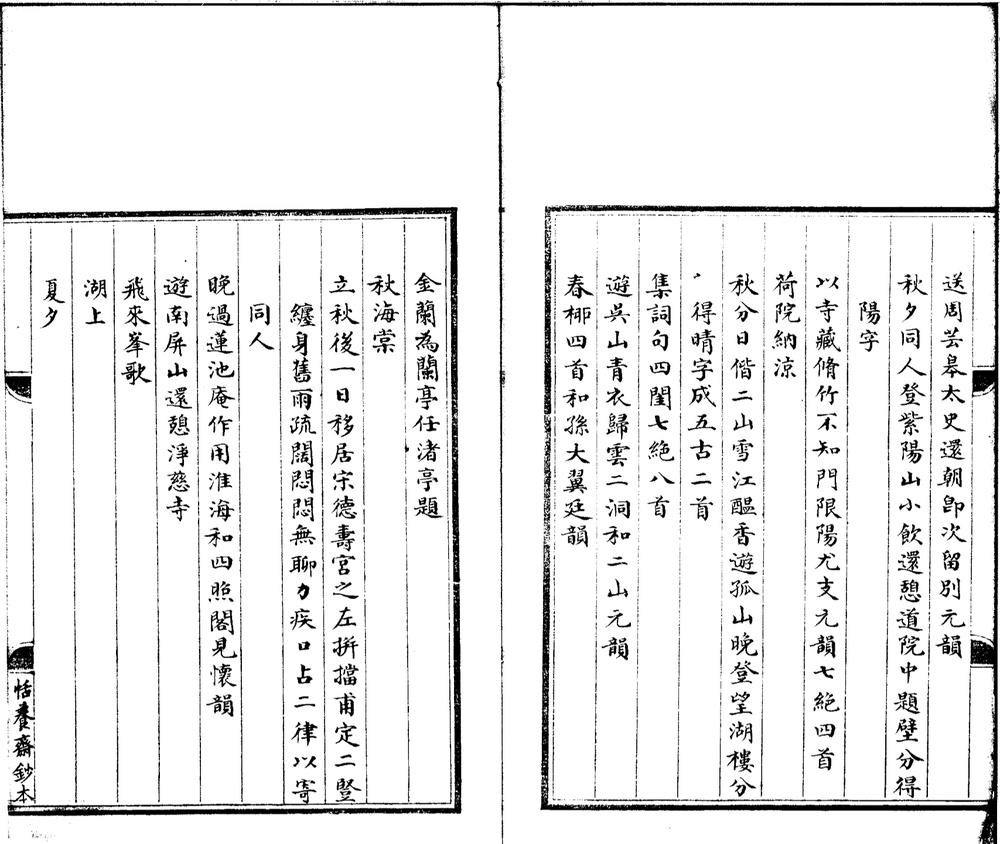 送周芸皋太史還朝即次留別元韻
秋夕同人登紫陽山小飲還憩道院中題壁分得
陽字
以寺藏脩竹不知門限陽尤支元韻七絕四首
荷院納涼
秋分日偕二山雪江醞香遊孤山晚登望湖樓分
得晴字成五古二首
集詞句四闺七絕八首
遊吳山青衣歸雲二洞和二山元韻
春柳四首和孫大翼廷韻
金蘭為蘭亭任渚亭題
秋海棠
立秋後一日移居宋德壽宮之左拚擋甫定二豎
纏身舊雨疏闊悶悶無聊力疾口占二律以寄
同人
晚過蓮池庵作用淮海和四照閣見懷韻
遊南屏山還憩淨慈寺
飛來峯歌
湖上
夏夕
恬養齋鈔本